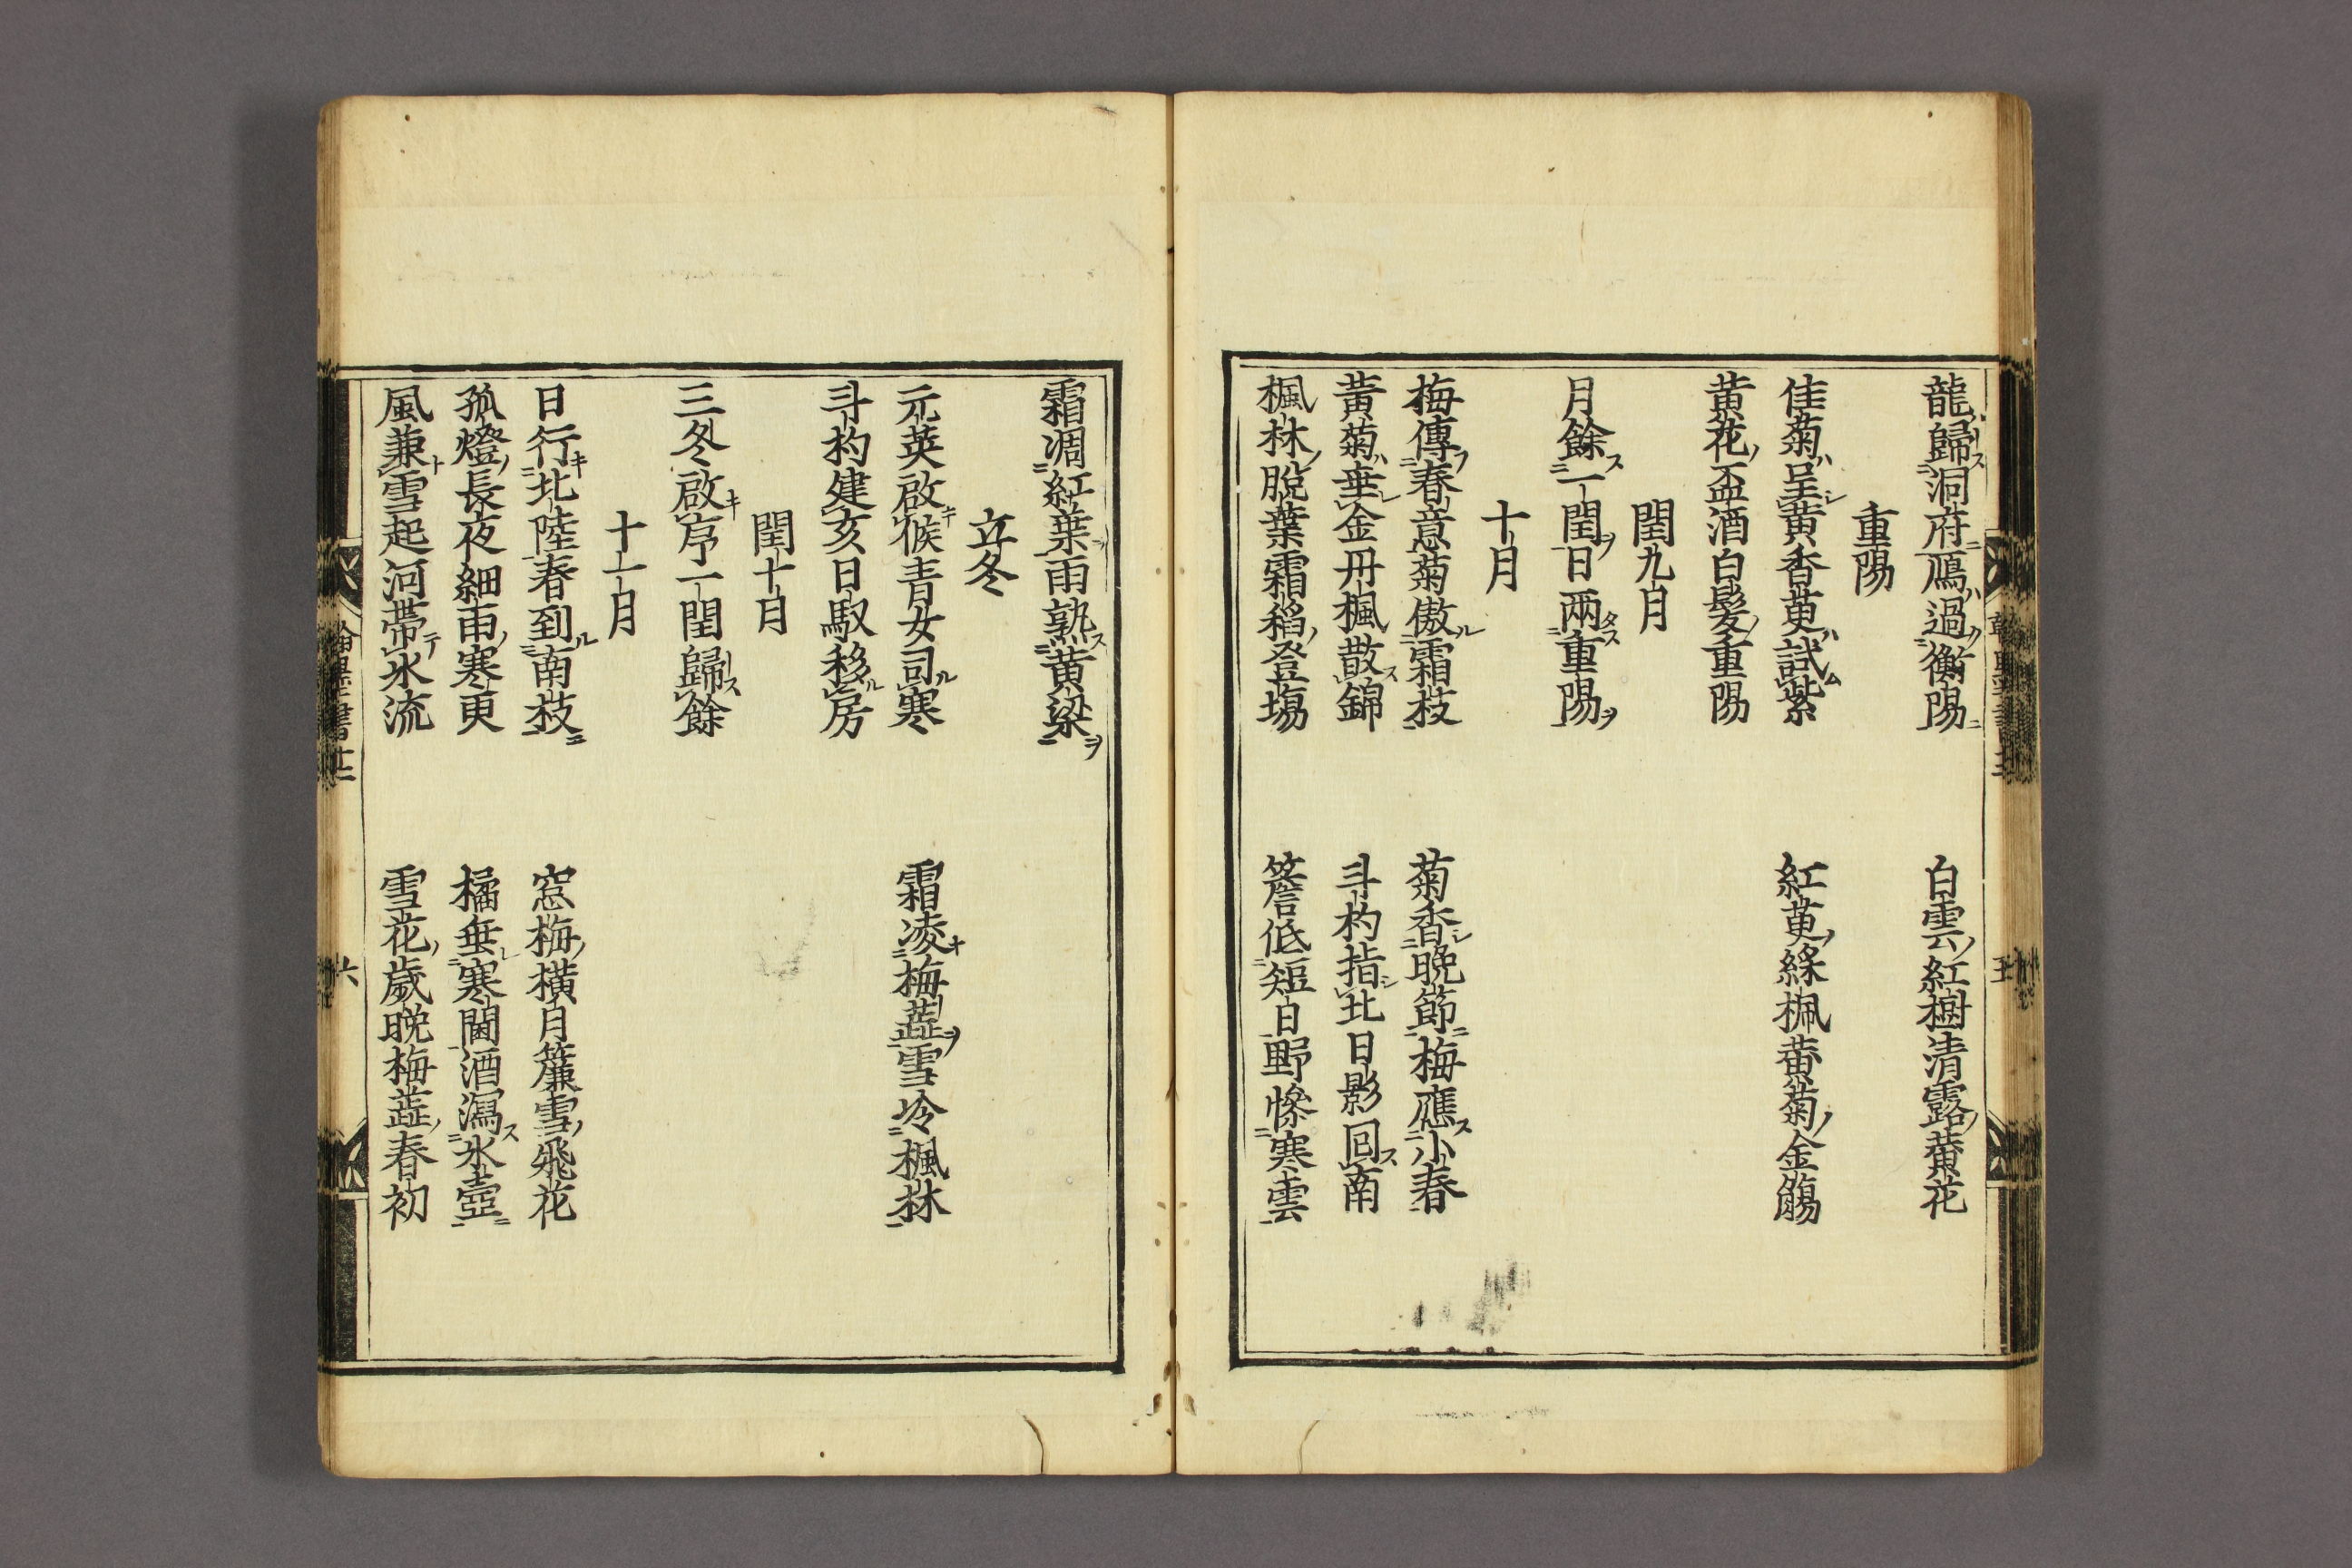 龍歸洞府鴈過衡陽　白雲紅樹清露黄花
重陽
佳菊呈黄香萸試紫　紅萸綵佩黄菊金觴
黄花盃酒白髮重陽
閏九月
月餘一閏日兩重陽
十月
梅傳春意菊傲霜枝　菊香晩節梅應小春
黃菊垂金丹楓散錦　斗杓指北日影回南
楓林脫葉霜稻登塲　簷低短日野慘寒雲
霜凋紅葉雨熟黄梁
立冬
元英啟候青女司寒　霜凌梅蘂雪冷楓林
斗杓建亥日馭移房
閏十月
三冬啟序一閏歸餘
十一月
日行北陸春到南枝　窓梅横月簾雪飛花
孤燈長夜細雨寒更　橘垂寒圃酒瀉氷壺
風兼雪起河帶氷流　雪花歲晩梅蘂春初
六